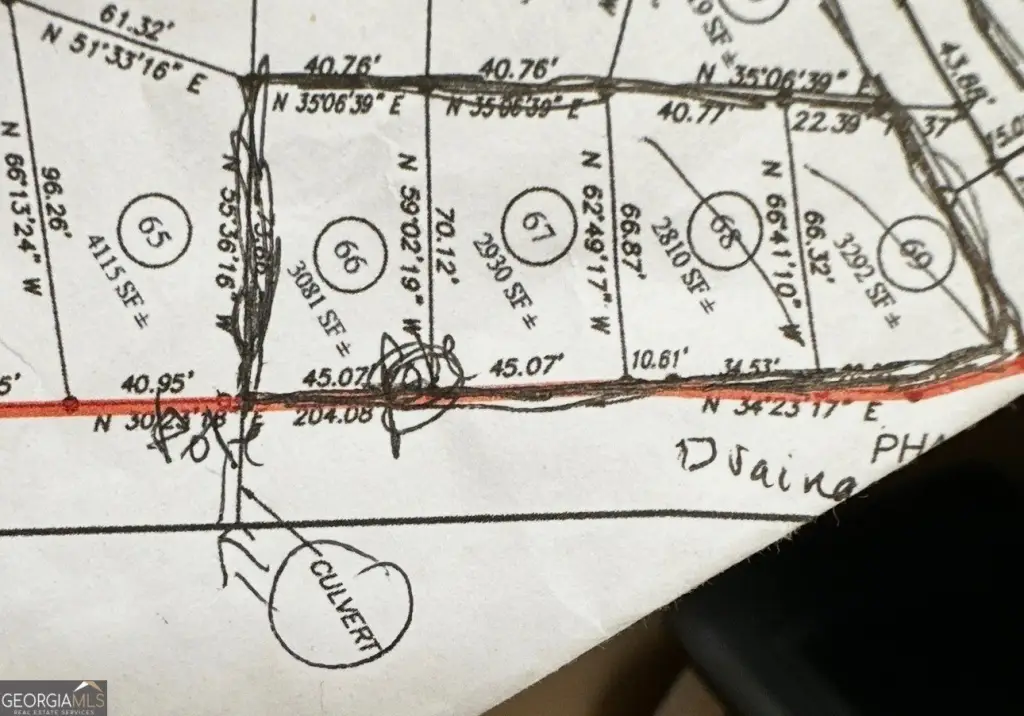 61.32'
N 51°33'16" E
40.76'
40.76'
N 35°06'39" E
N 35°06'39" E
N 35°06'39" E
40.77'
22.39'
37'
43.88'
N 66°13'24" W
96.26'
65
4115 SF ±
N 55°36'16" W
66
3081 SF ±
N 59°02'19" W
70.12'
67
2930 SF ±
N 62°49'17" W
66.87'
68
2810 SF ±
N 66°41'10" W
66.32'
69
3292 SF ±
40.95'
45.07'
45.07'
10.61'
34.53'
N 30°23'18" E
204.08
N 34°23'17" E
Draina
CULVERT
GEORGIAMLS
REAL ESTATE SERVICES